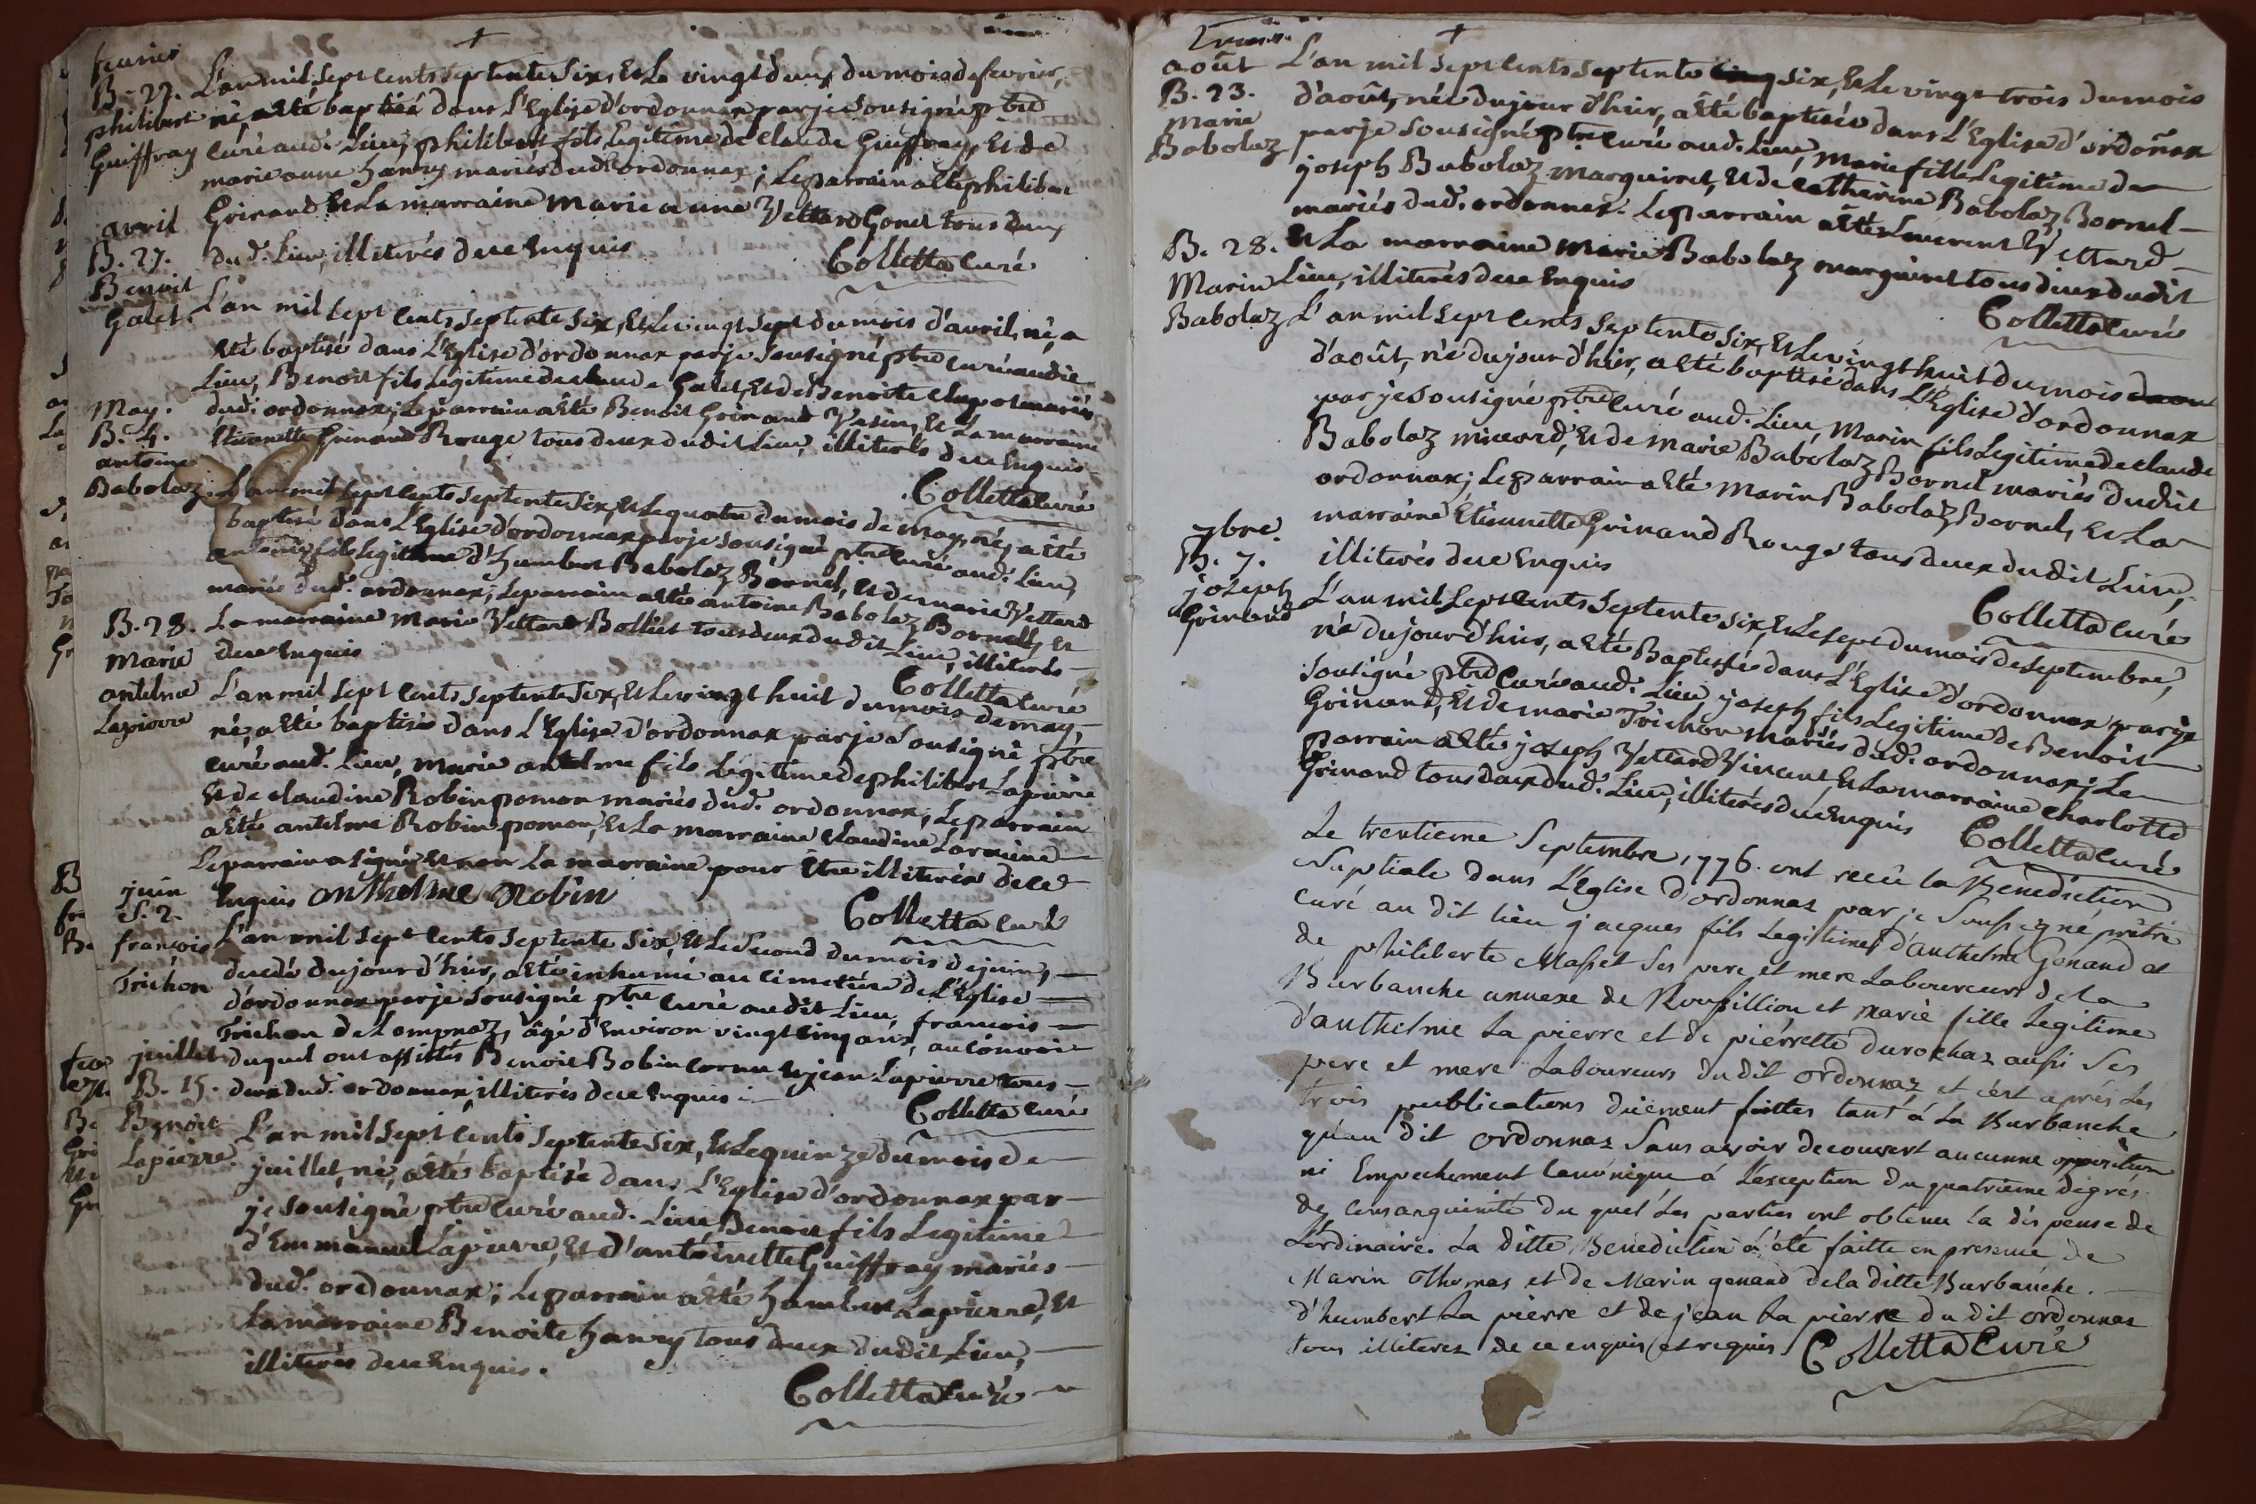 fevrier
B. 22.
philibert
Guiffray
L'an mil sept cents septente six, Et Le vingt deux du mois de fevrier,
né, a été baptisé dans L'Eglise d'ordonnax par je sousigné ptre
curé aud. Lieu, philibert fils Legitime de claude Guiffray, Et de
marie anne hanry mariés dud. ordonnax; Le parrain a été philibert
Grinand Et La marraine marie anne Vettard Gonet tous deux
dud. Lieu, illiterés de ce Enquis
Colletta Curé
avril
B. 27.
Benoit
Galet.
L'an mil sept cents septente six, Et Le vingt sept du mois d'avril, né, a
été baptisé dans L'Eglise d'ordonnax par je sousigné ptre curé audit
Lieu, Benoit fils Legitime de claude Galet, Et de Benoite clapot mariés
dud. ordonnax; Le parrain a été Benoit Grinand Vesin, Et La marraine
Etiennette Grinand Rouge tous deux dudit Lieu, illiterés de ce Enquis
Colletta Curé
May.
B. 4.
antoine
Babolaz
L'an mil sept cents septente six, Et Le quatre du mois de may, né, a été
baptisé dans L'Eglise d'ordonnax par je sousigné ptre curé aud. Lieu,
antoine fils Legitime d'humbert Babolaz Bornel, Et de marie Vettard
mariés dud. ordonnax; Le parrain a été antoine Babolaz Bornel, Et
La marraine marie Vettard Bolliet tous deux dudit Lieu, illiterés
de ce Enquis
Colletta Curé
B. 28.
Marie
antelme
Lapierre
L'an mil sept cents septente six, Et Le vingt huit du mois de may,
né, a été baptisé dans L'Eglise d'ordonnax par je sousigné ptre
curé aud. Lieu, marie antelme fils Legitime de philibert Lapierre
Et de claudine Robin pomon mariés dud. ordonnax; Le parrain
a été antelme Robin pomon, Et La marraine claudine Laraine
Le parrain a signé Et non La marraine pour Etre illiterée de ce
Enquis onthelme Robin
Colletta Curé
juin
S. 2.
françois
Trichon
L'an mil sept cents septente six, Et Le second du mois de juin,
decedé du jour d'hier, a été inhumé au cimetiere de L'Eglise
d'ordonnax par je sousigné ptre curé audit Lieu, françois
Trichon de Lompnaz, âgé d'Environ vingt cinq ans, au convoi
duquel ont assistés Benoit Robin cornu Et jean Lapierre tous
deux dud. ordonnax, illiterés de ce Enquis
Colletta Curé
juillet
B. 15.
Benoit
Lapierre.
L'an mil sept cents septente six, Et Le quinze du mois de
juillet, né, a été baptisé dans L'Eglise d'ordonnax par
je sousigné ptre curé aud. Lieu, Benoit fils Legitime
d'Emmanuel Lapierre, Et d'antoinette Guiffray mariés
dud. ordonnax; Le parrain a été humbert Lapierre, Et
La marraine Benoite hanry tous deux dudit Lieu,
illiterés de ce Enquis.
Colletta Curé
août
B. 23.
Marie
Babolaz
L'an mil sept cents septente six, Et Le vingt trois du mois
d'août, née du jour d'hier, a été baptisée dans L'Eglise d'ordoñax
par je sousigné ptre curé aud. Lieu, Marie fille Legitime de
joseph Babolaz marguiret, Et de catherine Babolaz Bornel
mariés dud. ordonnax. Le parrain a été Laurent Vettard
Et La marraine Marie Babolaz marguiret tous deux dudit
Lieu, illiterés de ce Enquis
Colletta Curé
B. 28.
Marin
Babolaz
L'an mil sept cents septente six, Et Le vingt huit du mois
d'août, né du jour d'hier, a été baptisé dans L'Eglise d'ordonnax
par je sousigné ptre curé aud. Lieu, Marin fils Legitime de claude
Babolaz micard, Et de marie Babolaz Bornel mariés dudit
ordonnax; Le parrain a été Marin Babolaz Bornel, Et La
marraine Etiennette Grinand Rouge tous deux dudit Lieu,
illiterés de ce Enquis
Colletta Curé
7bre.
B. 7.
joseph
Grinand
L'an mil sept cents septente six, Et Le sept du mois de septembre,
né du jour d'hier, a été Baptisé dans L'Eglise d'ordonnax par je
sousigné ptre curé aud. Lieu, joseph fils Legitime de Benoit
Grinand, Et de marie Trichon mariés dud. ordonnax; Le
parrain a été joseph Vettard Vincent, Et La marraine charlotte
Grinand tous deux dud. Lieu, illiterés de ce Enquis
Colletta Curé
Le trentieme Septembre 1776. ont recû la Bénédiction
Nuptiale dans L'Eglise d'ordonnaz par je Soussigné prêtre
curé au dit lieu jacques fils Legitime d'anthelme Genand et
de philiberte Masset ses pere et mere Laboureurs de la
Burbanche annexe de Roussillion et marie fille Legitime
d'anthelme la pierre et de pierrette durochaz aussi ses
pere et mere Laboureurs du dit ordonnaz et c'est aprés Les
trois publications duement faittes tant á la Burbanche
qu'au dit ordonnaz Sans avoir decouvert aucunne opposition
ni Empechement Canonique á L'exception du quatrieme degrés
de Consanguinité du quel Les parties ont obtenu la dispense de
L'ordinaire. la ditte Benediction á été faitte en presence de
Marin Thomas et de Marin genand de la ditte Burbanche.
d'humbert la pierre et de jean la pierre du dit ordonnaz
tous illiterez de ce enquis et requis Colletta Curé